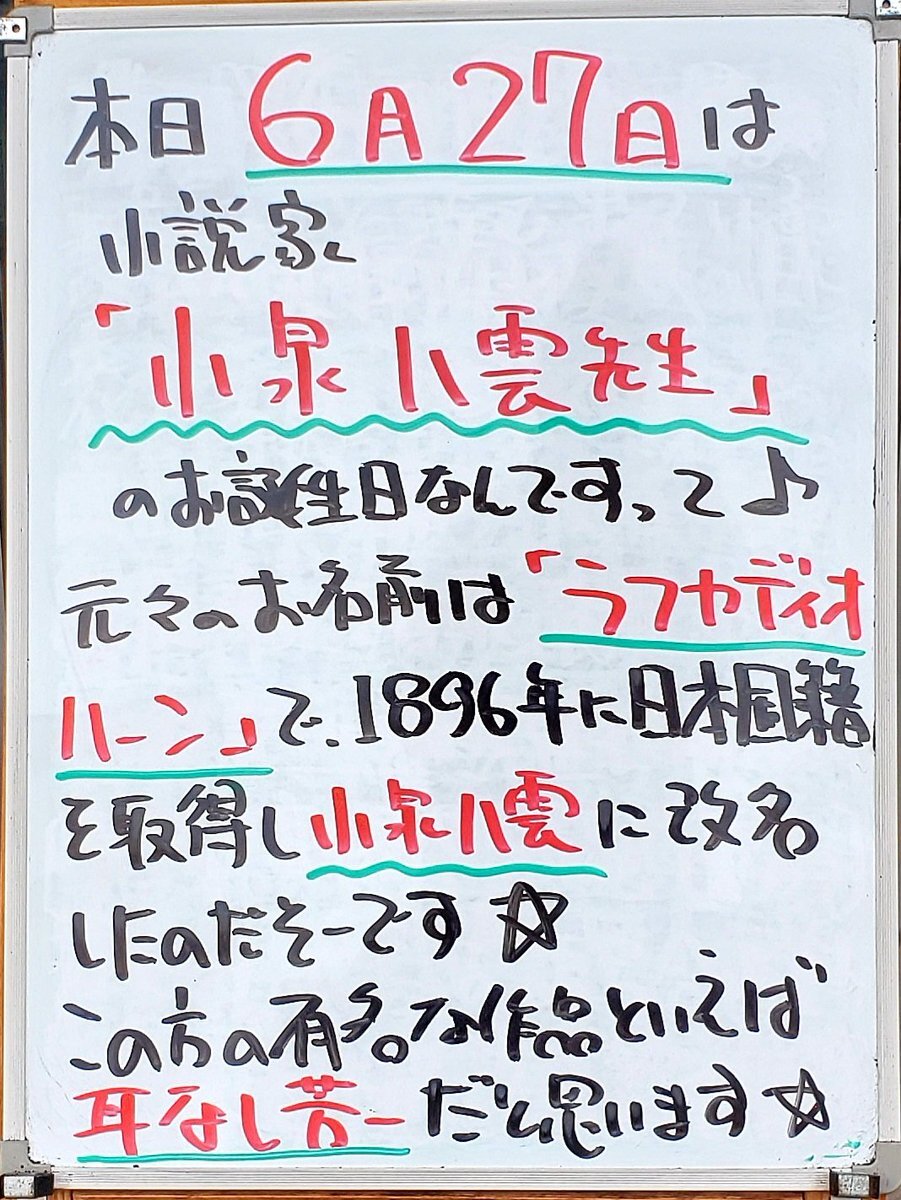 本日6月27日は
小説家
「小泉八雲先生」
のお誕生日なんですって♪
元々のお名前は「ラフカディオ
ハーン」で、1896年に日本国籍
を取得し小泉八雲に改名
したのだそーです☆
この方の有名な作品といえば
耳なし芳一だと思います☆